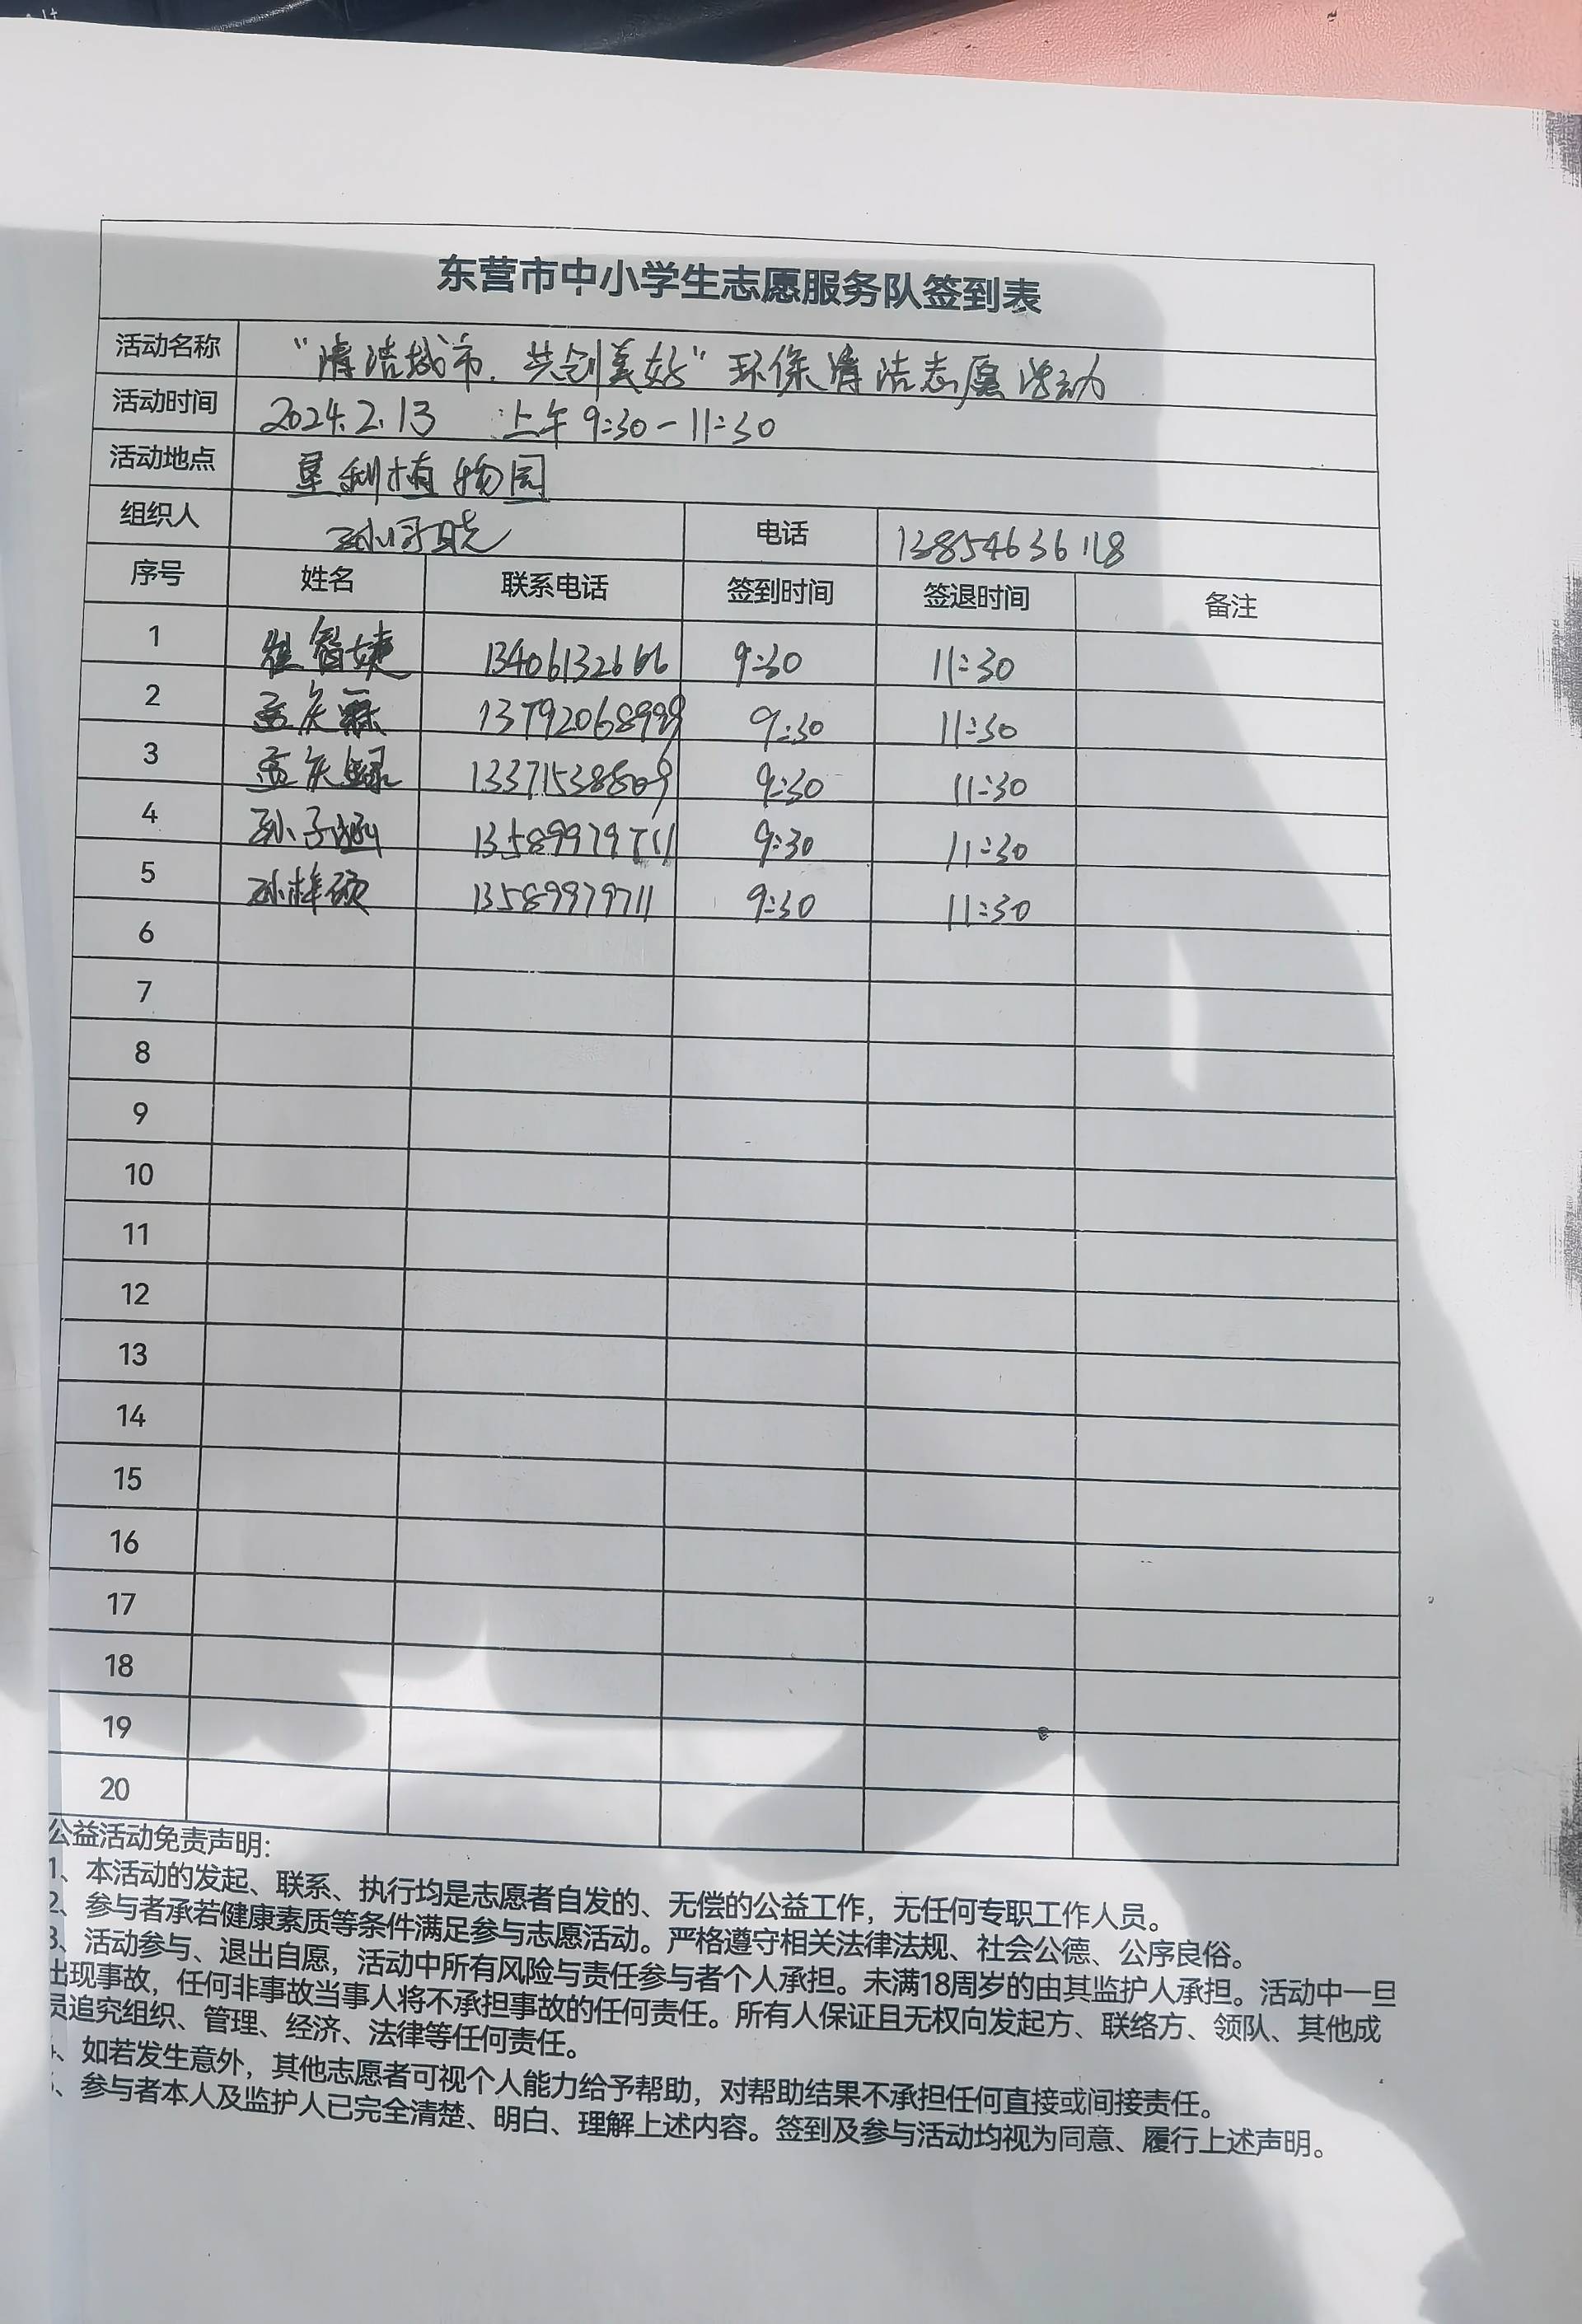 东营市中小学生志愿服务队签到表
活动名称 “清洁城市，共创美好”环保清洁志愿活动
活动时间 2024.2.13 上午9:30-11:30
活动地点 垦利植物园
组织人 电话 13854636118
序号 姓名 联系电话 签到时间 签退时间 备注
1 崔智婕 13406132666 9:30 11:30
2 孟庆霖 13792068999 9:30 11:30
3 孟庆 13371538809 9:30 11:30
4 孙子涵 13589979711 9:30 11:30
5 孙梓硕 13589979711 9:30 11:30
6
7
8
9
10
11
12
13
14
15
16
17
18
19
20
公益活动免责声明：
1、本活动的发起、联系、执行均是志愿者自发的、无偿的公益工作，无任何专职工作人员。
2、参与者承若健康素质等条件满足参与志愿活动。严格遵守相关法律法规、社会公德、公序良俗。
3、活动参与、退出自愿，活动中所有风险与责任参与者个人承担。未满18周岁的由其监护人承担。活动中一旦
出现事故，任何非事故当事人将不承担事故的任何责任。所有人保证且无权向发起方、联络方、领队、其他成
员追究组织、管理、经济、法律等任何责任。
、如若发生意外，其他志愿者可视个人能力给予帮助，对帮助结果不承担任何直接或间接责任。
、参与者本人及监护人已完全清楚、明白、理解上述内容。签到及参与活动均视为同意、履行上述声明。